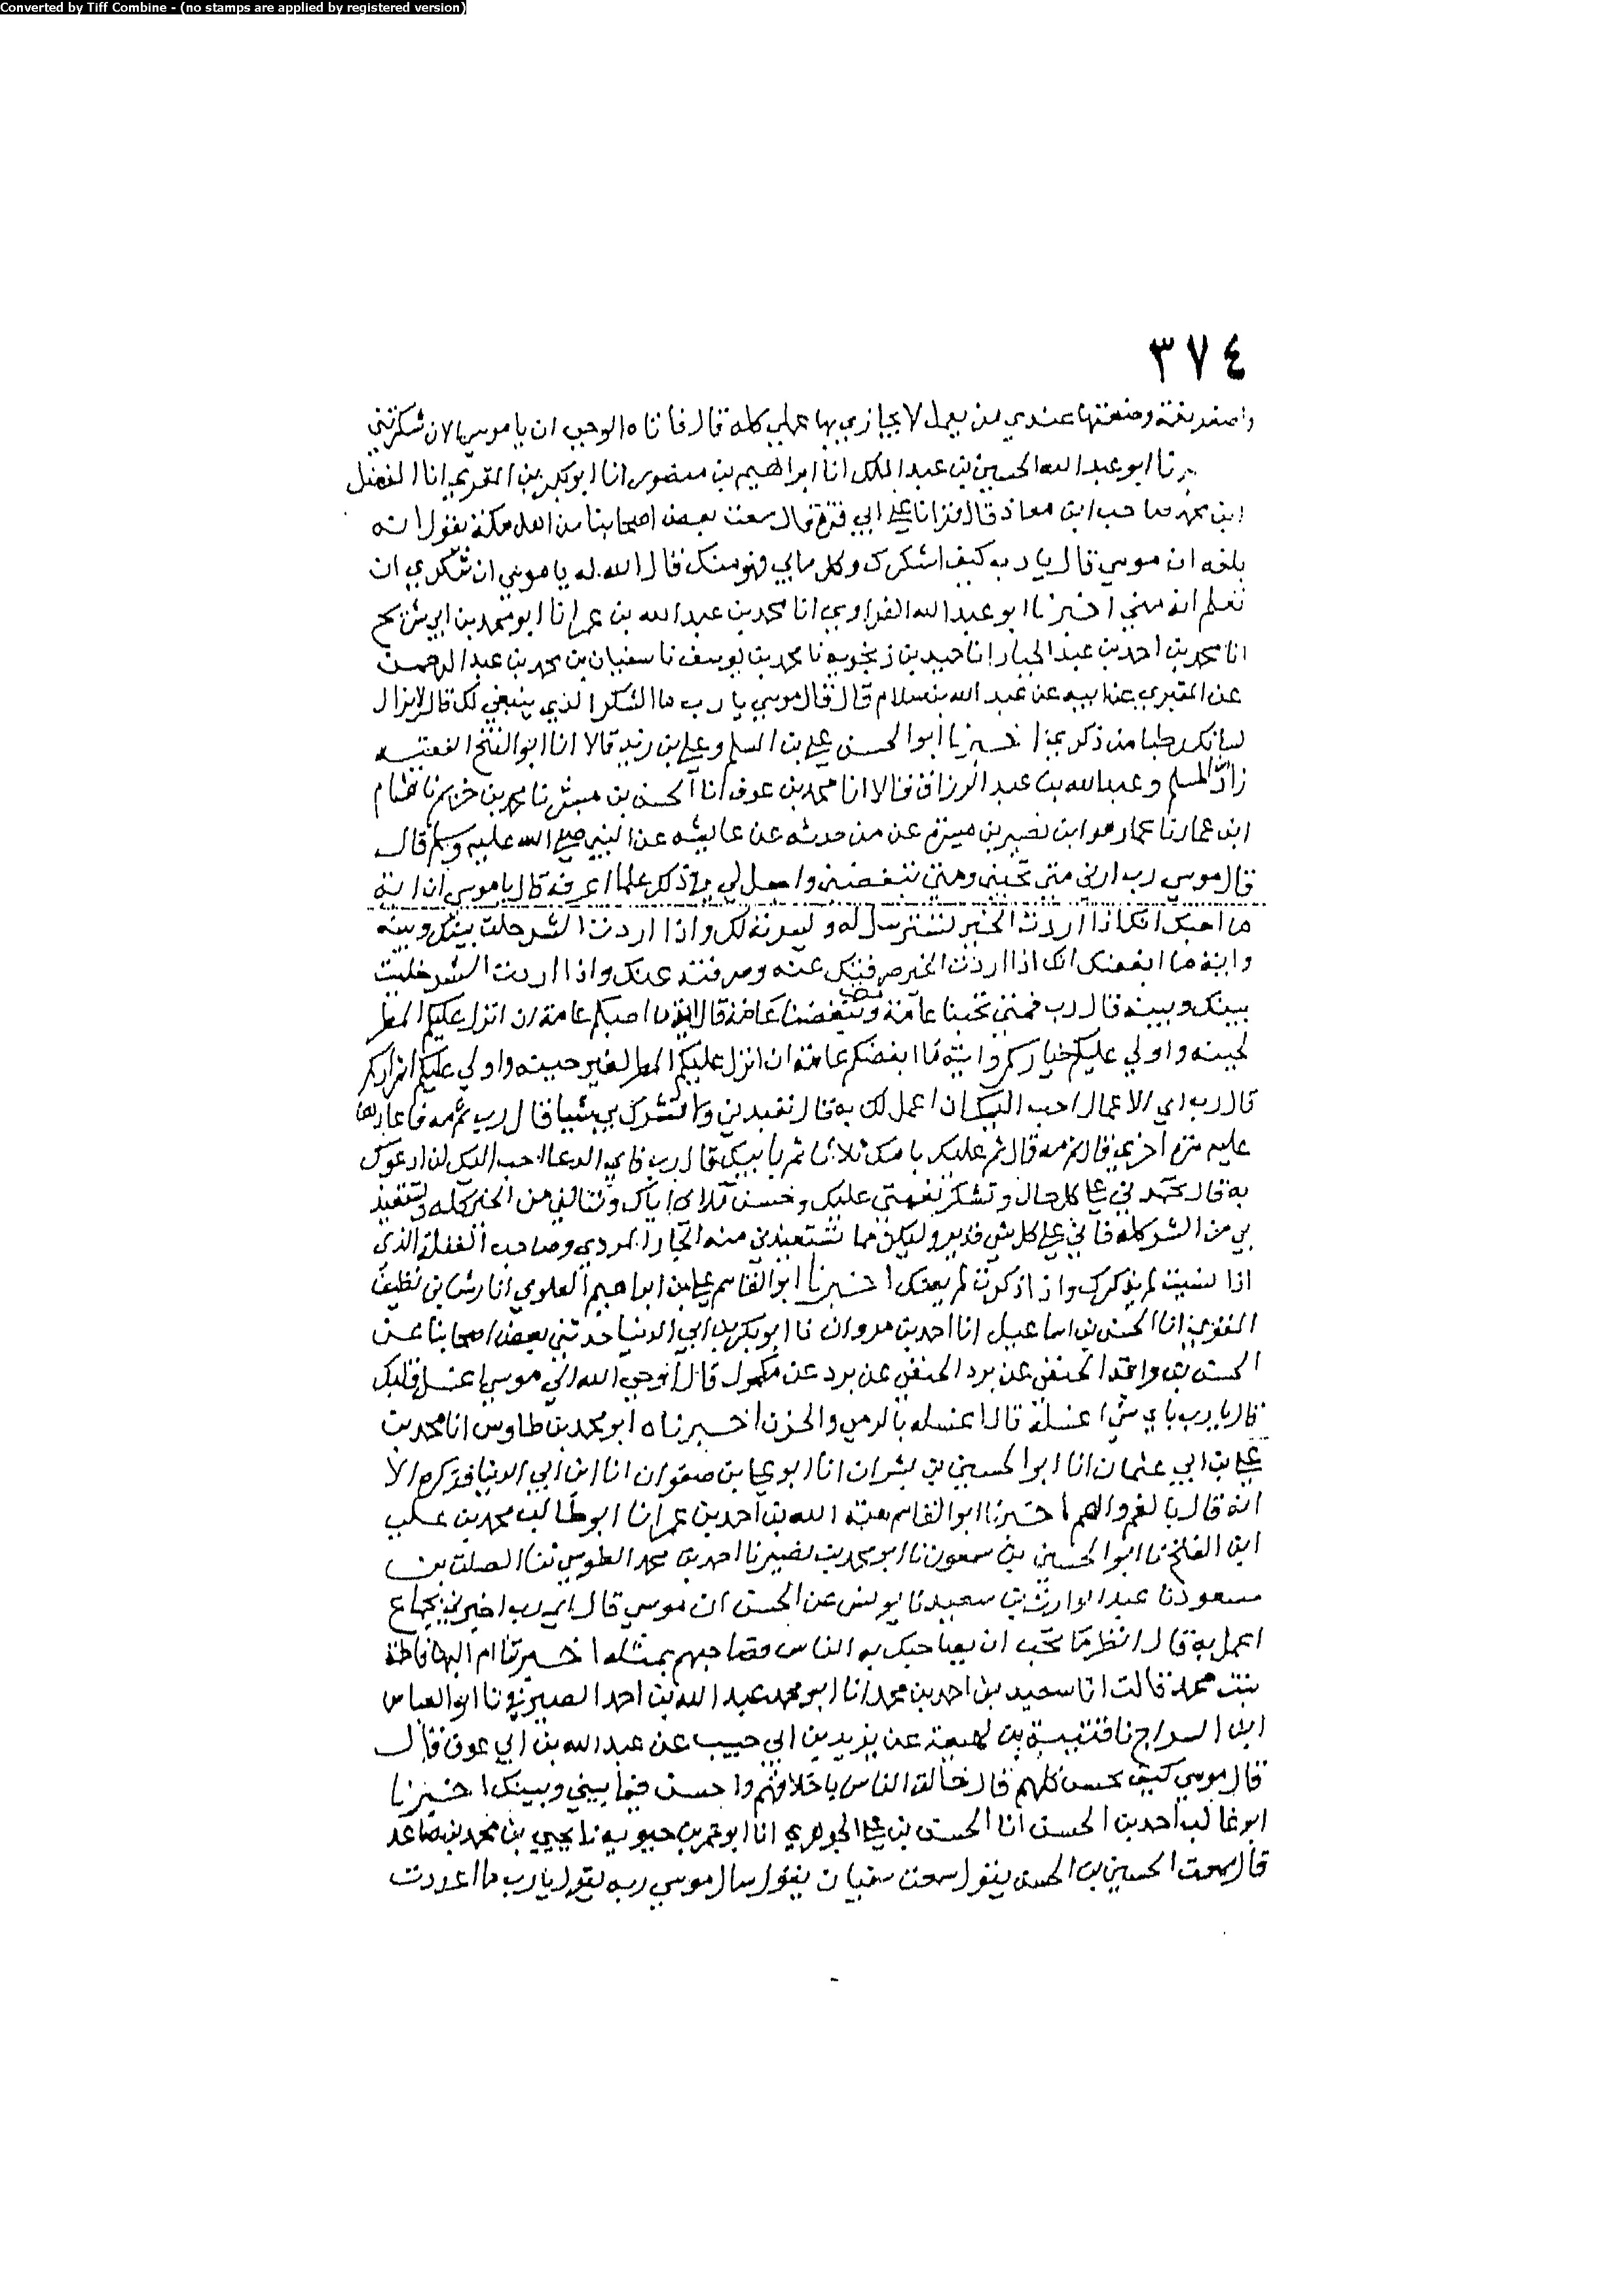 Converted by Tiff Combine - (no stamps are applied by registered version)
٣٧٤
واصغر نعمة وضعتها عندي من يعمل لا يجازي بها عملي كله قال فاتاه الوحي ان يا موسى الان شكرتني
نا ابو عبد الله الحسين بن عبد الملك انا ابراهيم بن منصور انا ابو بكر بن المقري انا المفضل
ابن محمد صاحب ابن معاذ قال قرانا على ابي قرة قال سمعت بعض اصحابنا من اهل مكة يقول انه
بلغه ان موسى قال يا رب كيف اشكرك وكل مابي فهو منك فقال الله له يا موسى ان شكري ان
تعلم انه مني اخبرنا ابو عبد الله الفراوي انا محمد بن عبد الله بن عمر انا ابو محمد بن ابي شريح
انا محمد بن احمد بن عبد الجبار انا حميد بن زنجويه نا محمد بن يوسف نا سفيان بن محمد بن عبد الرحمن
عن المقبري عن ابيه عن عبد الله بن سلام قال قال موسى يا رب ما الشكر الذي ينبغي لك قال لا يزال
لسانك رطبا من ذكري اخبرنا ابو الحسن علي بن المسلم وعلي بن زيد قالا انا ابو الفتح الفقيه
زاد المسلم وعبد الله بن عبد الرزاق قالا انا محمد بن عوف انا الحسن بن منير نا محمد بن خزيم نا هشام
ابن عمار نا عمار هو ابن نصير بن ميسرة عن من حدثه عن عايشه عن النبي صلى الله عليه وسلم قال
قال موسى رب ارني متى تحبني ومتى تبغضني واجعل لي في ذلك علما اعرفه قال يا موسى ان اية
ما احبك انك اذا اردت الخير لتسترسل له وليعرنه لك واذا اردت الشر حلت بينك وبينه
واية ما ابغضك انك اذا اردت الخير صرفتك عنه وصرفته عنك واذا اردت الشر خليت
بينك وبينه قال رب فمتى تحبنا عامة وتبغضنا عامة قال اية ما احبكم عامة ان انزل عليكم المطر
لحينه واولي عليكم خياركم واية ما ابغضكم عامة ان انزل عليكم المطر لغير حينه واولي عليكم اشراركم
قال رب اي الاعمال احب اليك ان اعمل لك به قال تعبدني ولا تشرك بي شيا قال رب ثم مه فاعادها
عليه مرة اخرى قال ثم مه قال ثم عليك بامك ثلاثا ثم بابيك قال رب فاي الدعا احب اليك ان ادعوك
به قال تحمدني على كل حال وتشكر نعمتي عليك وحسن بلاي اياك وتسالني من الخير كله وتستعيذ
بي من الشر كله فاني على كل شي قدير وليكن مما تستعيذني منه الجار المردي وصاحب الغفلة الذي
اذا نسيت لم يذكرك واذا ذكرت لم يعنك اخبرنا ابو القاسم علي بن ابراهيم العلوي انا رشا بن نظيف
المقري انا الحسن بن اسماعيل انا احمد بن مروان نا ابو بكر بن ابي الدنيا حدثني بعض اصحابنا عن
الحسن بن واقد الحنفي عن برد الحنفي عن برد عن مكحول قال اوحى الله الى موسى اغسل قلبك
قال يا رب باي شي اغسله قال اغسله بالهم والحزن اخبرناه ابو محمد بن طاوس انا محمد بن
علي بن ابي عثمان انا ابو الحسين بن بشران انا ابو علي بن صفوان انا ابن ابي الدنيا فذكره الا
انه قال بالغم والهم اخبرنا ابو القاسم هبة الله بن احمد بن عمر انا ابو طالب محمد بن علي
ابن الفتح نا ابو الحسين بن سمعون نا ابو محمد بن نصير نا احمد بن محمد الطوسي نا الصلت بن
مسعود نا عبد الوارث بن سعيد نا يونس عن الحسن ان موسى قال اي رب اخبرني بجماع
اعمل به قال انظر ما تحب ان يصاحبك به الناس فصاحبهم بمثله اخبرتنا ام البها فاطمة
بنت محمد قالت انا سعيد بن احمد بن محمد انا ابو محمد عبد الله بن احمد الصيرفي نا ابو العباس
ابن السراج نا قتيبة بن لهيعة عن يزيد بن ابي حبيب عن عبد الله بن ابي عوف قال
قال موسى كيف بحسن كلهم قال خالق الناس باخلاقهم واحسن فيما بيني وبينك اخبرنا
ابو غالب احمد بن الحسن انا الحسن بن علي الجوهري انا ابو عمر بن حيويه نا يحيى بن محمد بن صاعد
قال سمعت الحسين بن الحسن يقول سمعت سفيان يقول سال موسى ربه يقول يا رب ما اعددت